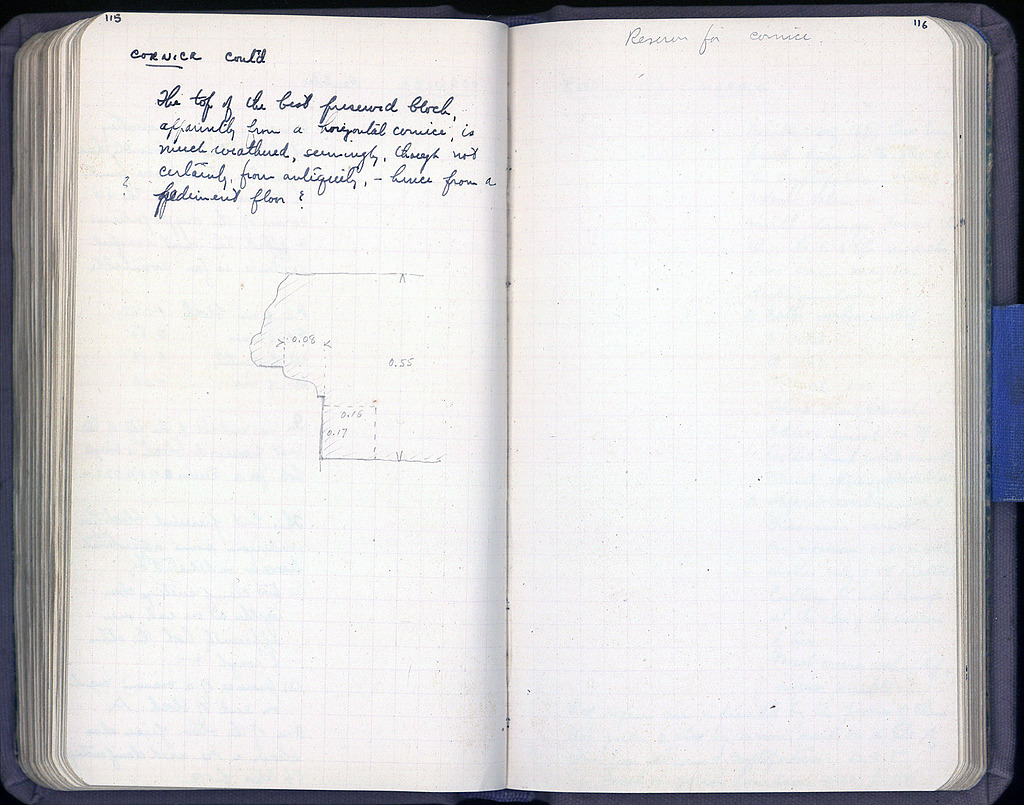 115
CORNICE cont'd
The top of the best preserved block,
apparently from a horizontal cornice, is
much weathered, seemingly, though not
certainly, from antiquity, – hence from a
? pediment floor ?
0.08
0.55
0.16
0.17
116
Reserve for cornice.